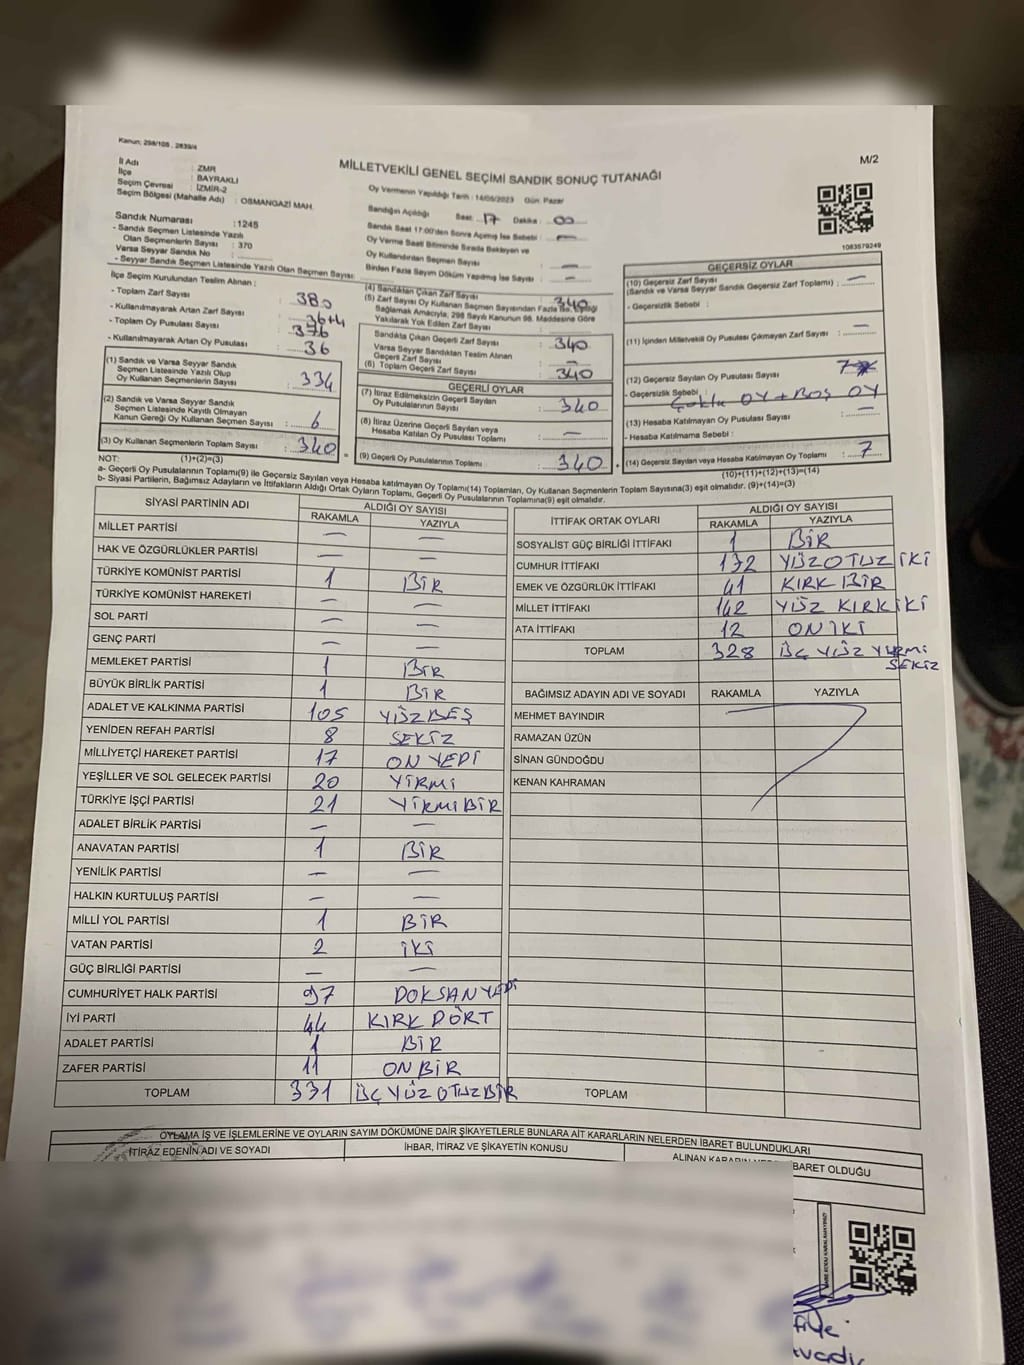 Kanun: 298/105 , 2839/4
MİLLETVEKİLİ GENEL SEÇİMİ SANDIK SONUÇ TUTANAĞI
M/2
İl Adı : ZMR
İlçe : BAYRAKLI
Seçim Çevresi : İZMİR-2
Seçim Bölgesi (Mahalle Adı) : OSMANGAZİ MAH.
Sandık Numarası : 1245
- Sandık Seçmen Listesinde Yazılı
Olan Seçmenlerin Sayısı : 370
Varsa Seyyar Sandık No :
- Seyyar Sandık Seçmen Listesinde Yazılı Olan Seçmen Sayısı:
Oy Vermenin Yapıldığı Tarih : 14/05/2023 Gün: Pazar
Sandığın Açıldığı Saat: 17 Dakika : 00
Sandık Saat 17:00'den Sonra Açılmış İse Sebebi : —
Oy Verme Saati Bitiminde Sırada Bekleyen ve
Oy Kullandırılan Seçmen Sayısı : —
Birden Fazla Sayım Döküm Yapılmış İse Sayısı : —
1083579249
İlçe Seçim Kurulundan Teslim Alınan :
- Toplam Zarf Sayısı : 380
- Kullanılmayarak Artan Zarf Sayısı : 36+4
- Toplam Oy Pusulası Sayısı : 376
- Kullanılmayarak Artan Oy Pusulası : 36
(1) Sandık ve Varsa Seyyar Sandık
Seçmen Listesinde Yazılı Olup
Oy Kullanan Seçmenlerin Sayısı : 334
(2) Sandık ve Varsa Seyyar Sandık
Seçmen Listesinde Kayıtlı Olmayan
Kanun Gereği Oy Kullanan Seçmen Sayısı : 6
(3) Oy Kullanan Seçmenlerin Toplam Sayısı : 340
(4) Sandıktan Çıkan Zarf Sayısı : 340
(5) Zarf Sayısı Oy Kullanan Seçmen Sayısından Fazla İse, Eşitliği
Sağlamak Amacıyla, 298 Sayılı Kanunun 98. Maddesine Göre
Yakılarak Yok Edilen Zarf Sayısı : —
Sandıkta Çıkan Geçerli Zarf Sayısı : 340
Varsa Seyyar Sandıktan Teslim Alınan
Geçerli Zarf Sayısı : —
(6) Toplam Geçerli Zarf Sayısı : 340
GEÇERLİ OYLAR
(7) İtiraz Edilmeksizin Geçerli Sayılan
Oy Pusulalarının Sayısı : 340
(8) İtiraz Üzerine Geçerli Sayılan veya
Hesaba Katılan Oy Pusulası Toplamı : —
(9) Geçerli Oy Pusulalarının Toplamı : 340
GEÇERSİZ OYLAR
(10) Geçersiz Zarf Sayısı : —
(Sandık ve Varsa Seyyar Sandık Geçersiz Zarf Toplamı) :
- Geçersizlik Sebebi :
(11) İçinden Milletvekili Oy Pusulası Çıkmayan Zarf Sayısı : —
(12) Geçersiz Sayılan Oy Pusulası Sayısı : 7
- Geçersizlik Sebebi : Çoklu OY + BOŞ OY
(13) Hesaba Katılmayan Oy Pusulası Sayısı : —
- Hesaba Katılmama Sebebi :
(14) Geçersiz Sayılan veya Hesaba Katılmayan Oy Toplamı : 7
NOT: (1)+(2)=(3)
(10)+(11)+(12)+(13)=(14)
a- Geçerli Oy Pusulalarının Toplamı(9) ile Geçersiz Sayılan veya Hesaba katılmayan Oy Toplamı(14) Toplamları, Oy Kullanan Seçmenlerin Toplam Sayısına(3) eşit olmalıdır. (9)+(14)=(3)
b- Siyasi Partilerin, Bağımsız Adayların ve İttifakların Aldığı Ortak Oyların Toplamı, Geçerli Oy Pusulalarının Toplamına(9) eşit olmalıdır.
SİYASİ PARTİNİN ADI
ALDIĞI OY SAYISI
RAKAMLA YAZIYLA
MİLLET PARTİSİ — —
HAK VE ÖZGÜRLÜKLER PARTİSİ — —
TÜRKİYE KOMÜNİST PARTİSİ 1 BİR
TÜRKİYE KOMÜNİST HAREKETİ — —
SOL PARTİ — —
GENÇ PARTİ — —
MEMLEKET PARTİSİ 1 BİR
BÜYÜK BİRLİK PARTİSİ 1 BİR
ADALET VE KALKINMA PARTİSİ 105 YÜZBEŞ
YENİDEN REFAH PARTİSİ 8 SEKİZ
MİLLİYETÇİ HAREKET PARTİSİ 17 ON YEDİ
YEŞİLLER VE SOL GELECEK PARTİSİ 20 YİRMİ
TÜRKİYE İŞÇİ PARTİSİ 21 YİRMİ BİR
ADALET BİRLİK PARTİSİ — —
ANAVATAN PARTİSİ 1 BİR
YENİLİK PARTİSİ — —
HALKIN KURTULUŞ PARTİSİ — —
MİLLİ YOL PARTİSİ 1 BİR
VATAN PARTİSİ 2 İKİ
GÜÇ BİRLİĞİ PARTİSİ — —
CUMHURİYET HALK PARTİSİ 97 DOKSAN YEDİ
İYİ PARTİ 44 KIRK DÖRT
ADALET PARTİSİ 1 BİR
ZAFER PARTİSİ 11 ON BİR
TOPLAM 331 ÜÇ YÜZ OTUZ BİR
İTTİFAK ORTAK OYLARI
ALDIĞI OY SAYISI
RAKAMLA YAZIYLA
SOSYALİST GÜÇ BİRLİĞİ İTTİFAKI 1 BİR
CUMHUR İTTİFAKI 132 YÜZ OTUZ İKİ
EMEK VE ÖZGÜRLÜK İTTİFAKI 41 KIRK BİR
MİLLET İTTİFAKI 142 YÜZ KIRK İKİ
ATA İTTİFAKI 12 ON İKİ
TOPLAM 328 ÜÇ YÜZ YİRMİ
SEKİZ
BAĞIMSIZ ADAYIN ADI VE SOYADI RAKAMLA YAZIYLA
MEHMET BAYINDIR
RAMAZAN ÜZÜN
SİNAN GÜNDOĞDU
KENAN KAHRAMAN
TOPLAM
OYLAMA İŞ VE İŞLEMLERİNE VE OYLARIN SAYIM DÖKÜMÜNE DAİR ŞİKAYETLERLE BUNLARA AİT KARARLARIN NELERDEN İBARET BULUNDUKLARI
İTİRAZ EDENİN ADI VE SOYADI
İHBAR, İTİRAZ VE ŞİKAYETİN KONUSU
ALINAN KARARIN İBARET OLDUĞU